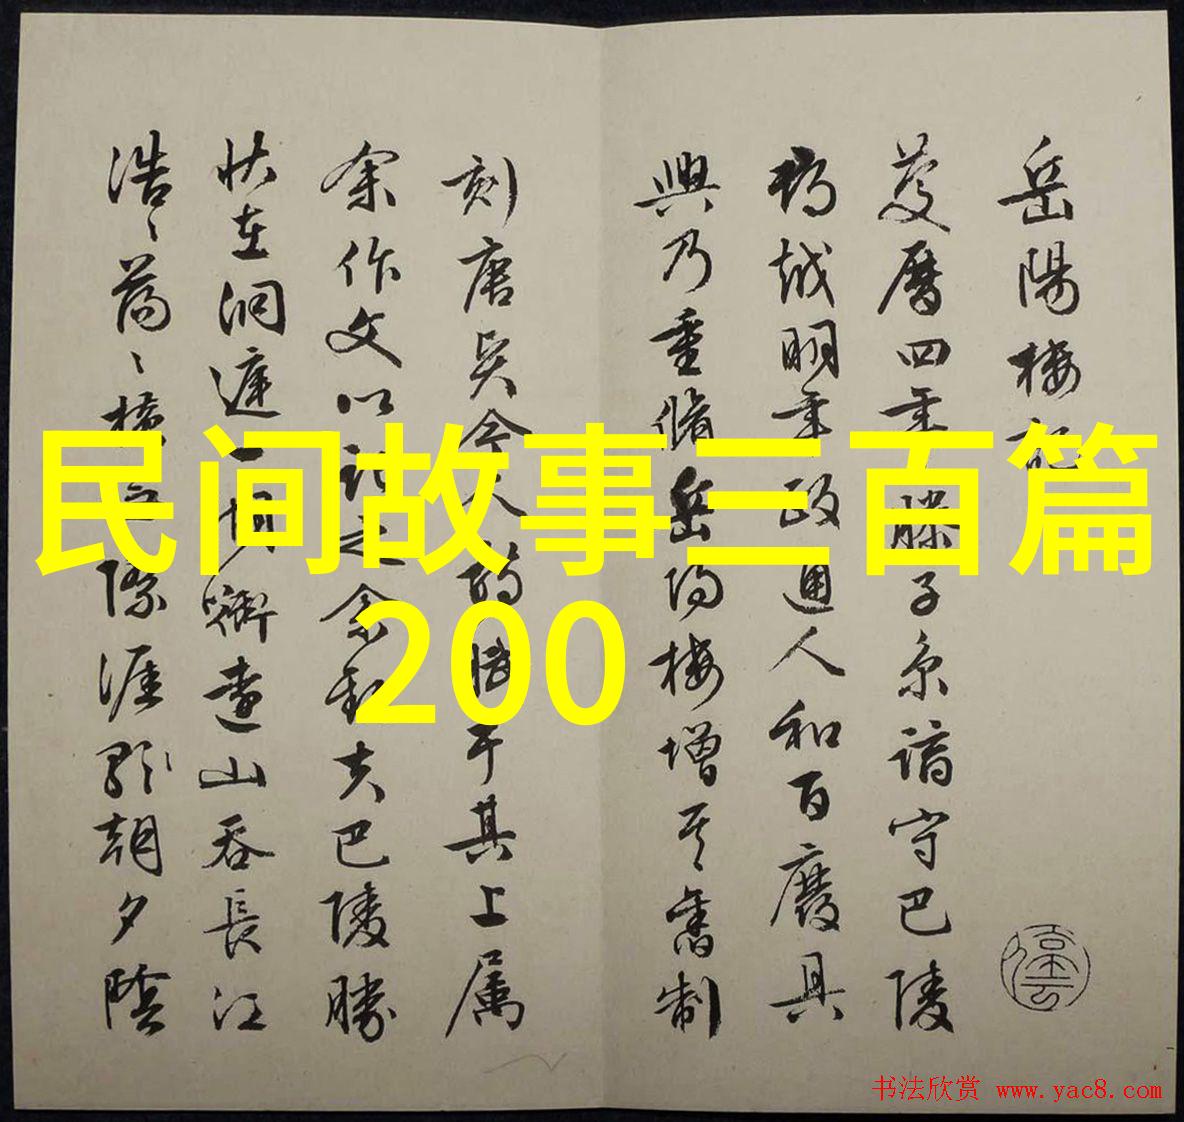 岳陽樓記
慶曆四年春滕子京謫守巴陵
郡越明年政通人和百廢具
興乃重脩岳陽樓增其舊制
刻唐賢今人詩賦于其上屬
余作文以記之余觀夫巴陵勝
狀在洞庭一湖銜遠山吞長江
浩〻蕩〻橫無際涯朝夕陰
民间故事三百篇
200
书法欣赏 www.yac8.com